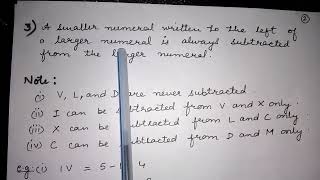 ②
3) A smaller numeral written to the left of
a larger numeral is always subtracted
from the larger numeral.
Note:
(i) V, L, and D are never subtracted.
(ii) I can be subtracted from V and X only.
(iii) X can be subtracted from L and C only.
(iv) C can be subtracted from D and M only.
e.g: (i) IV = 5-1 4